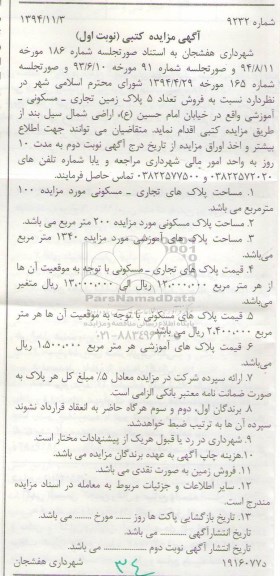 شماره ۹۲۳۲ ۱۳۹۴/۱۱/۳
آگهی مزایده کتبی (نوبت اول)
شهرداری هفشجان به استناد صورتجلسه شماره ۱۸۶ مورخه
۹۴/۸/۱۱ و صورتجلسه شماره ۹۱ مورخه ۹۳/۶/۱۰ و صورتجلسه
شماره ۱۶۵ مورخه ۱۳۹۴/۴/۲۹ شورای محترم اسلامی شهر در
نظردارد نسبت به فروش تعداد ۵ پلاک زمین تجاری ـ مسکونی ـ
آموزشی واقع در خیابان امام حسین (ع)، اراضی شمال سیل بند از
طریق مزایده کتبی اقدام نماید. متقاضیان می توانند جهت اطلاع
بیشتر و اخذ اوراق مزایده از تاریخ درج آگهی نوبت دوم به مدت ۱۰
روز به واحد امور مالی شهرداری مراجعه و یابا شماره تلفن های
۰۳۸۲۲۵۷۲۰۲۰ و ۰۳۸۲۲۵۷۷۵۰۰ تماس حاصل فرمایند.
۱. مساحت پلاک های تجاری ـ مسکونی مورد مزایده ۱۰۰
مترمربع می باشد.
۲. مساحت پلاک مسکونی مورد مزایده ۲۰۰ متر مربع می باشد.
۳. مساحت پلاک های آموزشی مورد مزایده ۱۳۴۰ متر مربع
می باشد.
۴. قیمت پلاک های تجاری ـ مسکونی با توجه به موقعیت آن ها
از هر متر مربع ۱۲،۰۰۰،۰۰۰ ریال الی ۱۳،۰۰۰،۰۰۰ ریال متغیر
می باشد.
ParsNamadData
پایگاه اطلاع رسانی مناقصه و مزایده
۰۲۱-۸۸۳۴۹۶۷۰
۵. قیمت پلاک های مسکونی با توجه به موقعیت آن ها هر متر
مربع ۲،۴۰۰،۰۰۰ ریال می باشد.
۶. قیمت پلاک های آموزشی هر متر مربع ۱،۵۰۰،۰۰۰ ریال
می باشد.
۷. ارائه سپرده شرکت در مزایده معادل ۵٪ مبلغ کل هر پلاک به
صورت ضمانت نامه معتبر بانکی الزامی است.
۸. برندگان اول، دوم و سوم هرگاه حاضر به انعقاد قرارداد نشوند
سپرده آن ها به ترتیب ضبط خواهدشد.
۹. شهرداری در رد یا قبول هریک از پیشنهادات مختار است.
۱۰. هزینه چاپ آگهی به عهده برندگان مزایده می باشد.
۱۱. فروش زمین به صورت نقدی می باشد.
۱۲. سایر اطلاعات و جزئیات مربوط به معامله در اسناد مزایده
مندرج است.
۱۳. تاریخ بازگشایی پاکت ها روز ...... مورخ ........ می باشد.
تاریخ انتشارآگهی ............ می باشد.
تاریخ انتشار آگهی نوبت دوم ............ می باشد.
۱۹۱۶۰۷۷د شهرداری هفشجان
۳۴